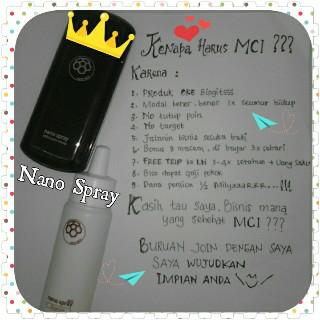 Kenapa Harus MCI ???
Karena :
1. Produk OKE Blogitsss
2. Modal bener-bener 1x seumur hidup
3. No tutup poin
4. No target
5. Jalanin bisnis semua bukti
6. Bonus 8 macam, di bayar 3x sehari
7. FREE TRIP ke LN 3-4x setahun + Uang Saku
8. Bisa dapat gaji pokok
9. Dana pensiun 1/2 Milyaaarrr...!!!
Kasih tau saya, Bisnis mana
yang sehebat MCI ???
BURUAN JOIN DENGAN SAYA
SAYA WUJUDKAN
IMPIAN ANDA
nano spray
Nano Spray
nano spray